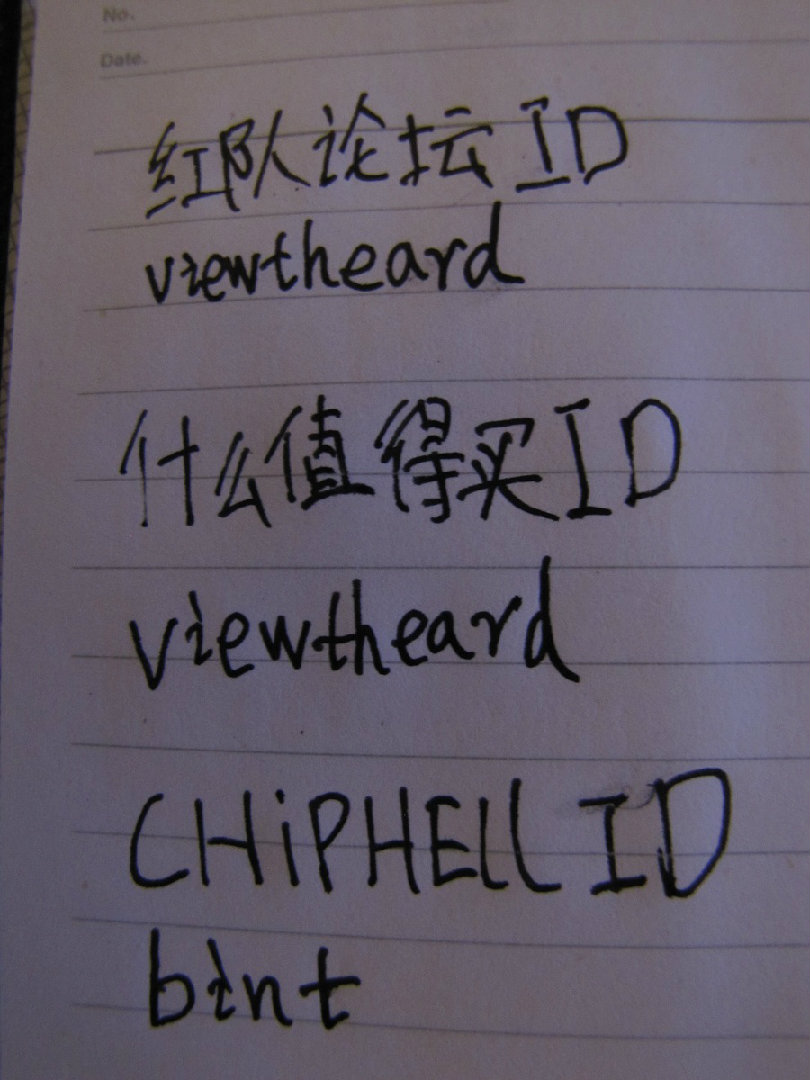 No.
Date.
红队论坛 ID
viewtheard
什么值得买ID
viewtheard
CHiPHELL ID
bint